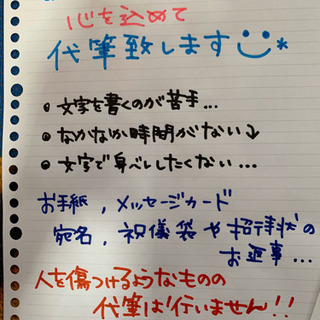 心を込めて
代筆致します
• 文字を書くのが苦手...
• なかなか時間がない↓
• 文字で身バレしたくない...
お手紙, メッセージカード
宛名, 祝儀袋や招待状の
お返事...
人を傷つけるようなものの
代筆は行いません!!